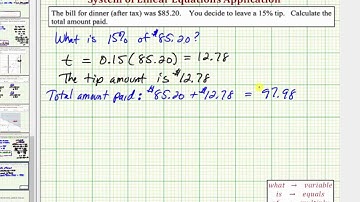 System of Linear Equations Application
The bill for dinner (after tax) was $85.20. You decide to leave a 15% tip. Calculate the
total amount paid.
What is 15% of $85.20?
t = 0.15(85.20) = 12.78
The tip amount is $12.78
Total amount paid: $85.20 + $12.78 = $97.98
what → variable
is → equals